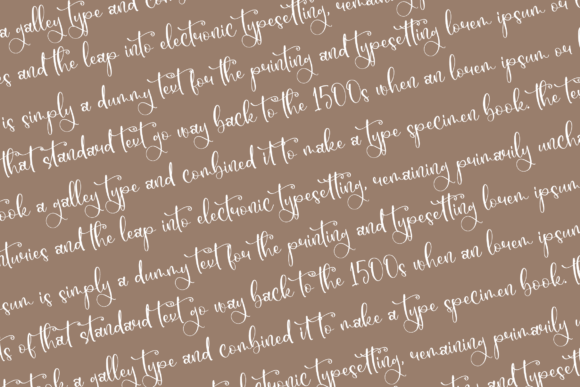 a galley type and
and the leap into electronic typesetting, remaining
is simply a dummy text for the printing and typesetting lorem ipsum
that standard text go way back to the 1500s when an lorem ipsum or
a galley type and combined it to make a type specimen book. the
and the leap into electronic typesetting, remaining primarily
is simply a dummy text for the printing and typesetting lorem ipsum
of that standard text go way back to the 1500s when an lorem ipsum
a galley type and combined it to make a type specimen book.
and the leap into electronic typesetting, remaining primarily
text for the printing and typesetting